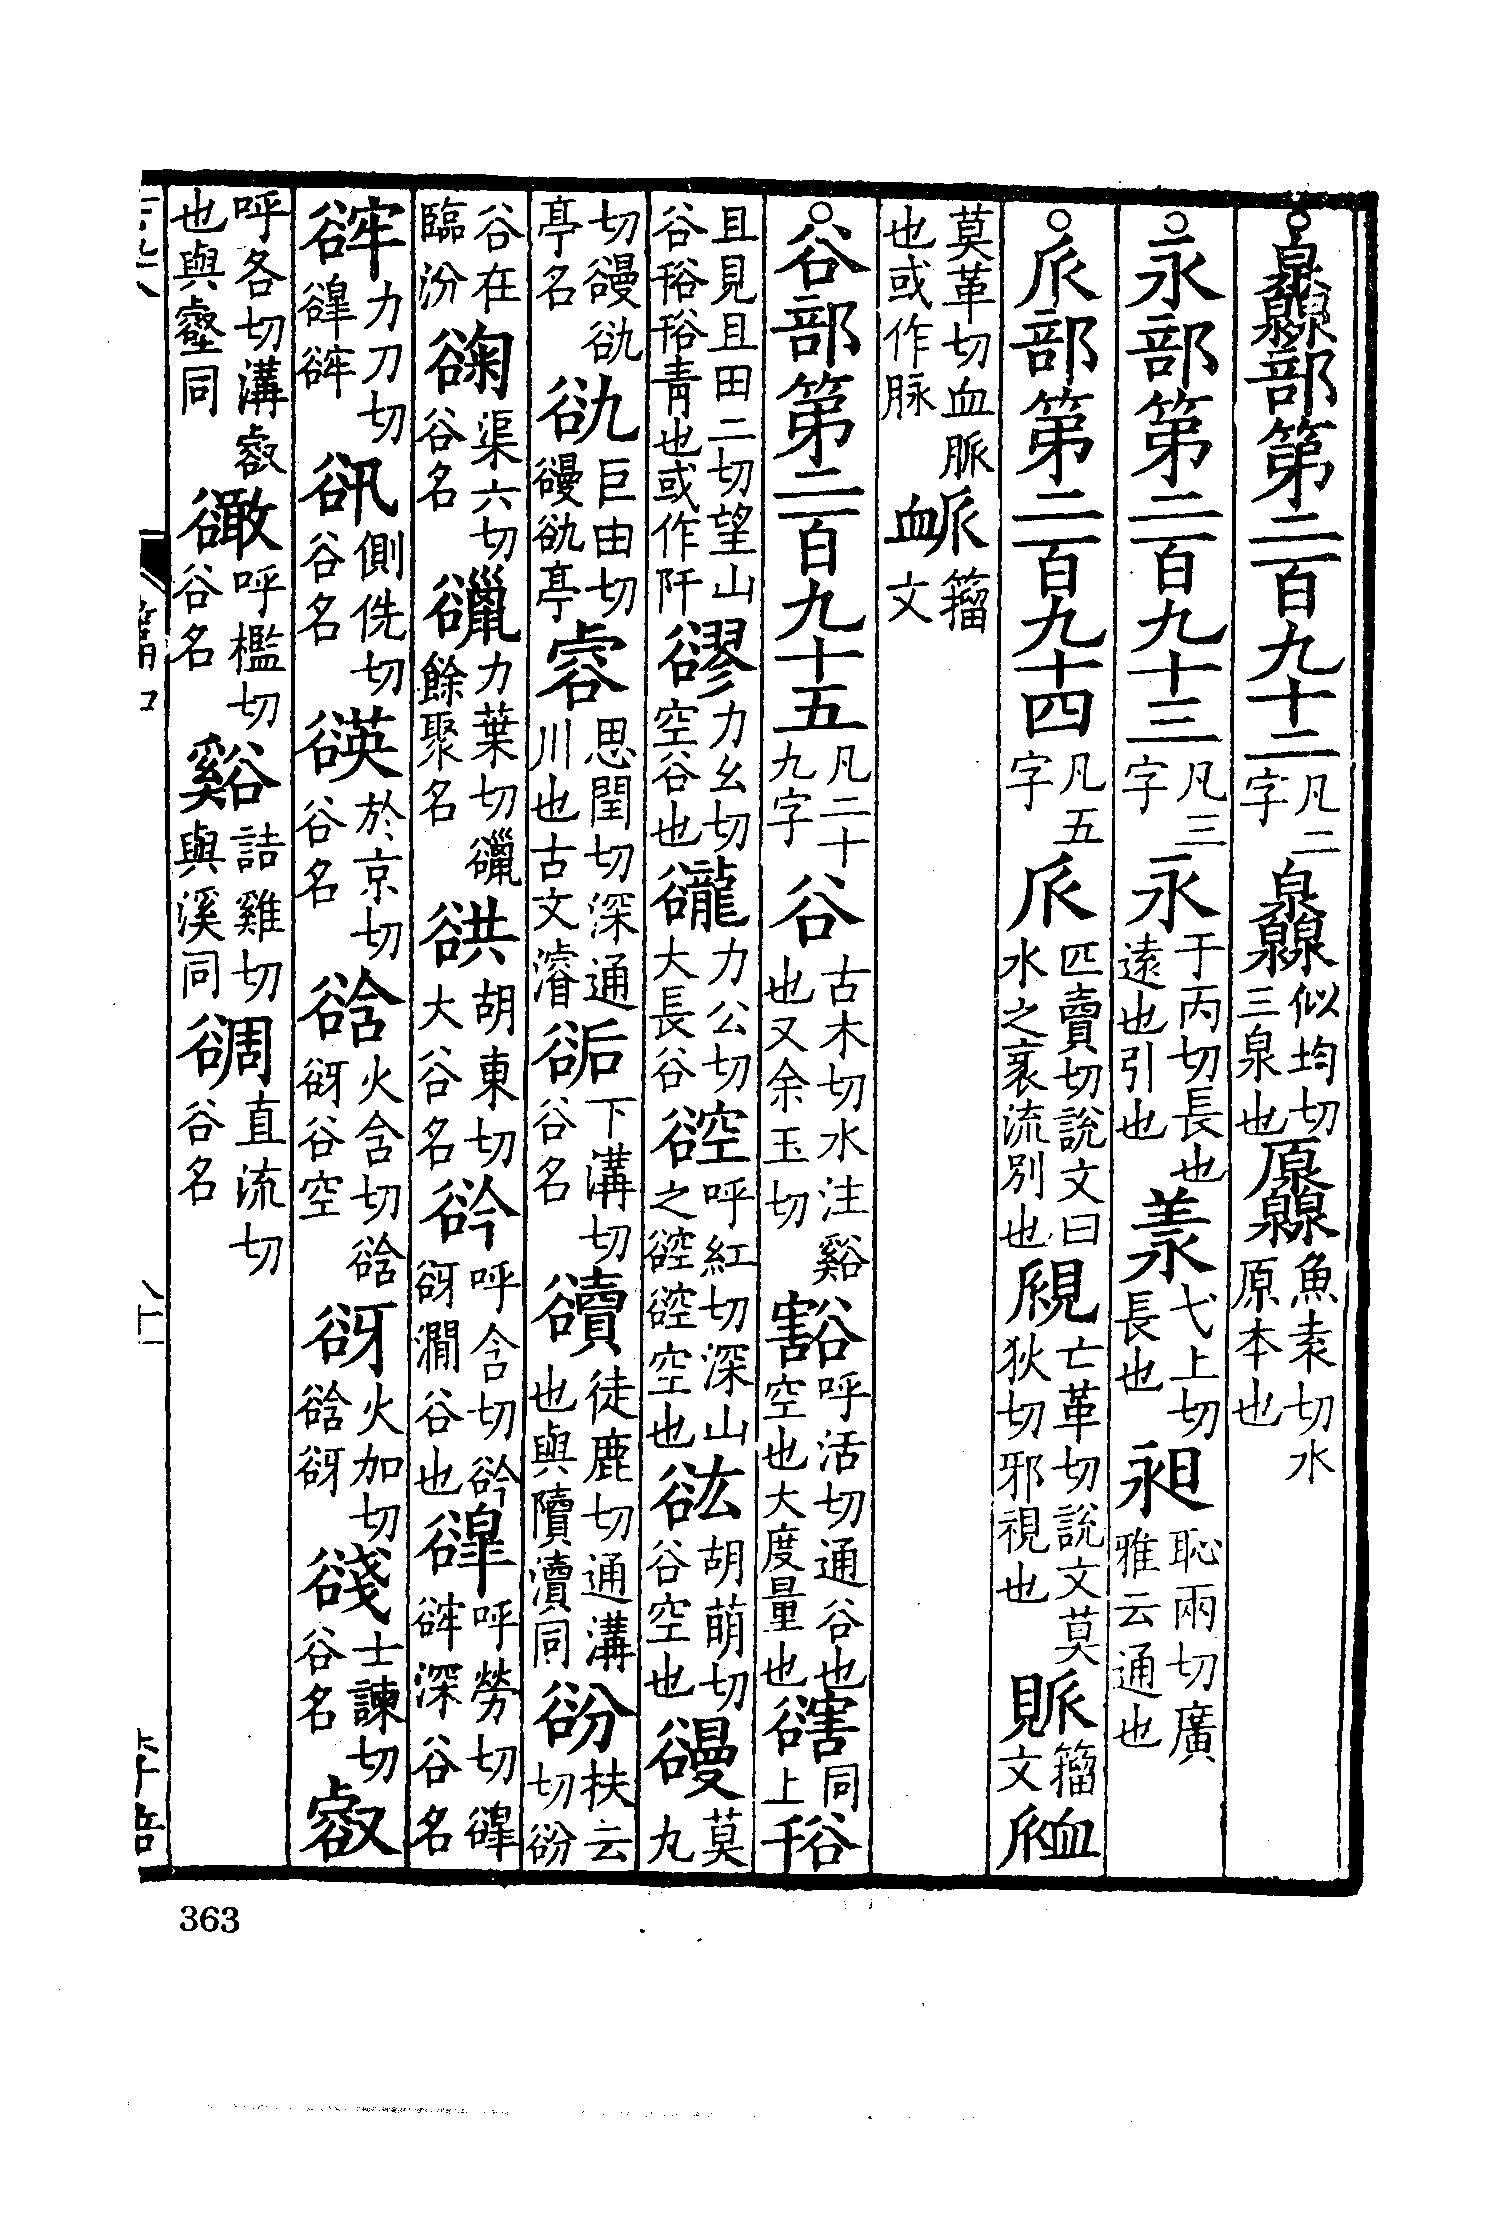 ○灥部第二百九十二凡二字灥似均切三泉也厵魚袁切水原本也
○永部第二百九十三凡三字永于丙切長也遠也引也羕弋上切長也昶恥兩切廣雅云通也
○𠂢部第二百九十四凡五字𠂢匹賣切說文曰水之衺流別也覛亡革切說文莫狄切邪視也𧠯籀文衇
莫革切血脈也或作脉𧖴籀文
○谷部第二百九十五凡二十九字谷古木切水注谿也又余玉切豁呼活切通谷也空也大度量也𧯆同上谸
且見且田二切望山谷谸谸青也或作阡𧯋力幺切空谷也豅力公切大長谷𧯏呼紅切深山之𧯏𧯏空也谹胡萌切谷空也𧯘莫丸
切𧯘𧮫亭名𧮫巨由切𧯘𧮫亭㕡思閏切深通川也古文濬𧮶下溝切谷名豄徒鹿切通溝也與隫瀆同𧮱扶云切𧮱
谷在臨汾𧯇渠六切谷名𧯠力葉切𧯠餘聚名谼胡東切大谷名谽呼含切谽谺澗谷也𧯌呼勞切𧯌𧯄深谷名
𧯄力刀切𧯌𧯄𧮪側侁切谷名𧯂於京切谷名𧯃火含切𧯃谺谷空谺火加切𧯃谺𧯅士諫切谷名叡
呼各切溝叡也與壑同豃呼檻切谷名谿詰雞切與溪同𧯀直流切谷名
363